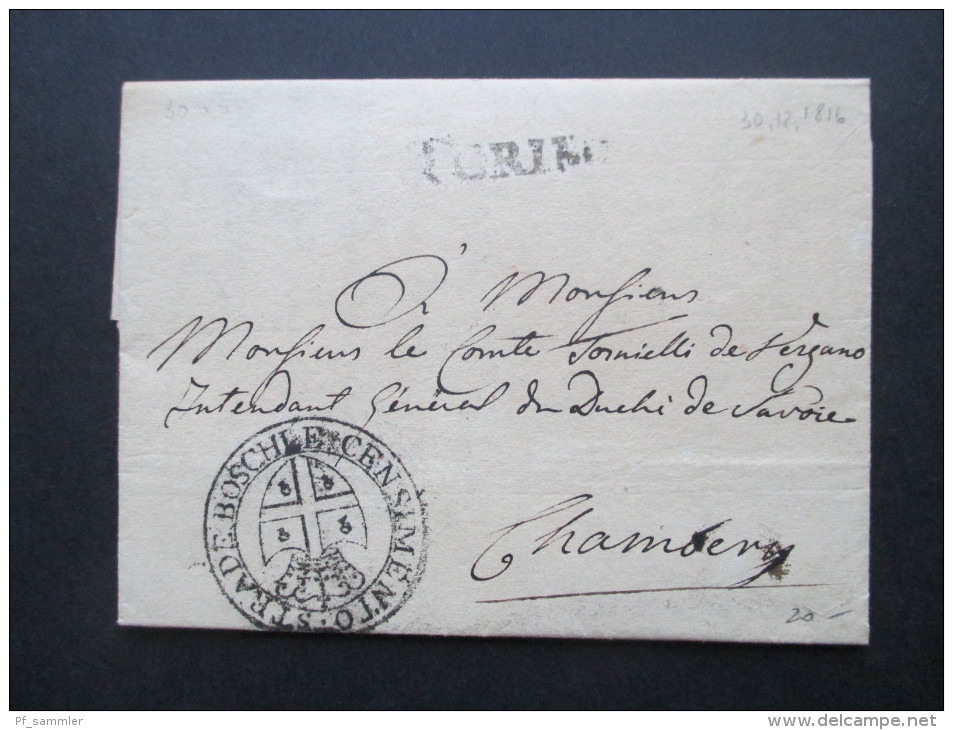 30.12.1816
TORINO
À Monsieur
Monsieur le Comte Tornielli de Vergano
Intendant Général du Duché de Savoie
STRADE BOSCHI E CENSIMENTO
Chambery
20-
Pf_sammler
www.delcampe.net